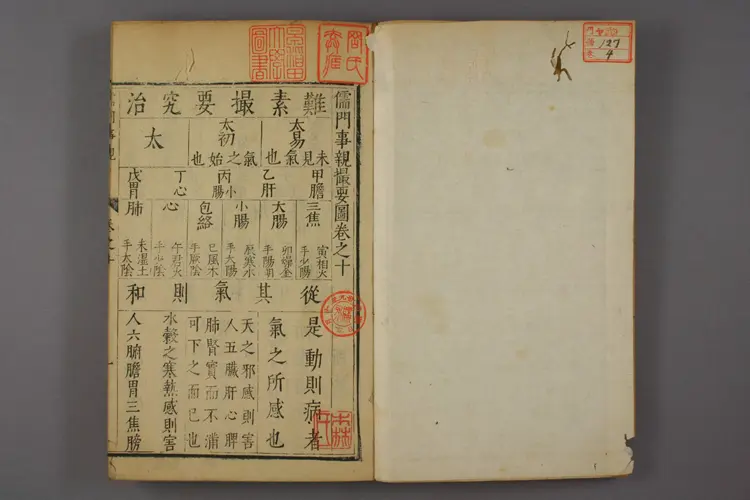 儒門事親撮要圖卷之十
難素撮要究治
太易
未見氣也
太初
氣之始也
太
甲膽
乙肝
丙小腸
丁心
戊胃
三焦
大腸
小腸
包絡
心
肺
寅相火
手少陽
卯燥金
手陽明
辰寒水
手太陽
巳風木
手厥陰
午君火
手少陰
未濕土
手太陰
從其氣則和
是動則病者
氣之所感也
天之邪感則害
人五臟肝心脾
肺腎實而不滿
可下之而已也
水穀之寒熱感則害
人六腑膽胃三焦膀
127
4